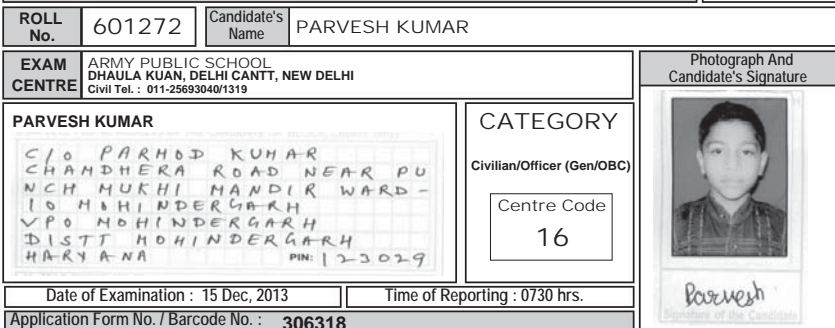 ROLL No. 601272 Candidate's Name PARVESH KUMAR
EXAM CENTRE
ARMY PUBLIC SCHOOL
DHAULA KUAN, DELHI CANTT, NEW DELHI
Civil Tel. : 011-25693040/1319
Photograph And
Candidate's Signature
PARVESH KUMAR
C/O PARMOD KUMAR
CHAMDHERA ROAD NEAR PU
NCH MUKHI MANDIR WARD-
10 MOHINDERGARH
VPO MOHINDERGARH
DISTT MOHINDERGARH
HARYANA PIN: 123029
CATEGORY
Civilian/Officer (Gen/OBC)
Centre Code
16
Parvesh
Signature of the Candidate
Date of Examination : 15 Dec, 2013 Time of Reporting : 0730 hrs.
Application Form No. / Barcode No. : 306318